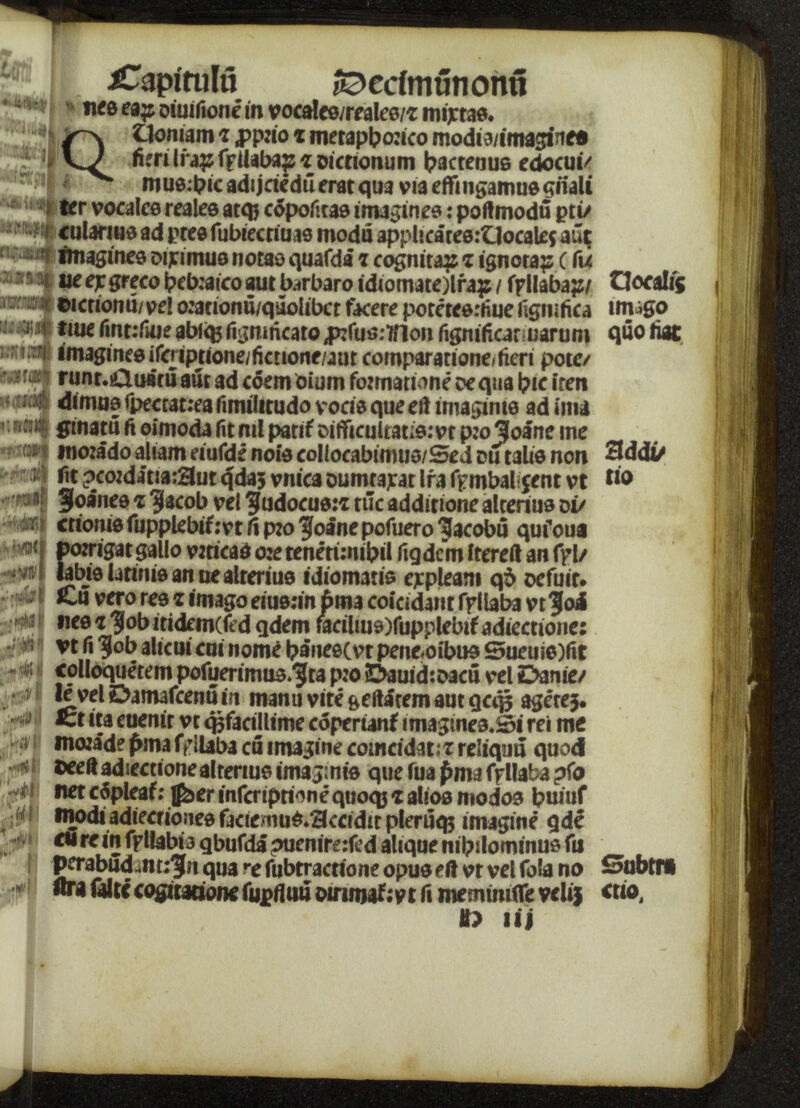 Capitulū Decimūnonū
nes eaꝝ diuisionē in vocales/reales/⁊ mixtas.
Quoniam ⁊ ꝓprio ⁊ metaphorico modis/imagines
fieri lr̄aꝝ syllabaꝝ ⁊ dictionum hactenus edocui/
mus:hic adijciēdū erat qua via effingamus gn̄ali
ter vocales reales atqꝫ cōpositas imagines : postmodū pti/
cularius ad ptes subiectiuas modū applicātes:Vocales aūt
imagines diximus notas quasdā ⁊ cognitaꝝ ⁊ ignotaꝝ ( si/
ue ex greco hebraico aut barbaro idiomate)lr̄aꝝ / syllabaꝝ/
dictionū/vel orationū/quālibet facere potētes:siue significa
tiue sint:siue absqꝫ significato ꝓrsus:Non significatiuarum
imagines iscriptione/fictione/aut comparatione/fieri pote/
runt.Quātū aūt ad cōem oium formationē de qua hic iten
dimus spectat:ea similitudo vocis que est imaginis ad ima
ginatū si oīmoda sit nil patit᷑ difficultatis:vt pro Joāne me
morādo aliam eiusdē nois collocabimus/Sed dū talis non
sit ꝯcordātia:Aut qdaꝫ vnica dumtaxat lr̄a symbalisent vt
Joānes ⁊ Jacob vel Judocus:⁊ tūc additione alterius di/
ctionis supplebit᷑:vt si pro Joāne posuero Jacobū qui oua
porrigat gallo vrticas ore tenēti:nihil siqdem iterest an syl/
labis latinis an ue alterius idiomatis expleam qd̄ defuit.
Cū vero res ⁊ imago eius:in p̄ma coicidant syllaba vt Joā
nes ⁊ Job itidem(sed qdem facilius)supplebit᷑ adiectione:
vt si Job alicui cui nomē hānes(vt pene oibus Sueuis)sit
colloquētem posuerimus.Ita pro Dauid:dacū vel Danie/
lē vel Damascenū in manu vitē gestātem aut qcqꝫ agēteꝫ.
Et ita euenit vt qꝫfacillime cōperiant᷑ imagines.Si rei me
morāde p̄ma syllaba cū imagine coincidat:⁊ reliquū quod
deest adiectione alterius imaginis que sua p̄ma syllaba ꝯso
net cōpleat᷑: Per inscriptionē quoqꝫ ⁊ alios modos huius
modi adiectiones faciemus.Accidit plerūqꝫ imaginē qdē
cū re in syllabis qbusdā ꝯuenire:sed alique nihilominus su
perabūdant:In qua re subtractione opus est vt vel sola no
stra saltē cogitatione supfluū dirimat᷑:vt si meminisse velis
Vocalis
imago
quō fiat
Addi/
tio
Subtra
ctio.
h iij